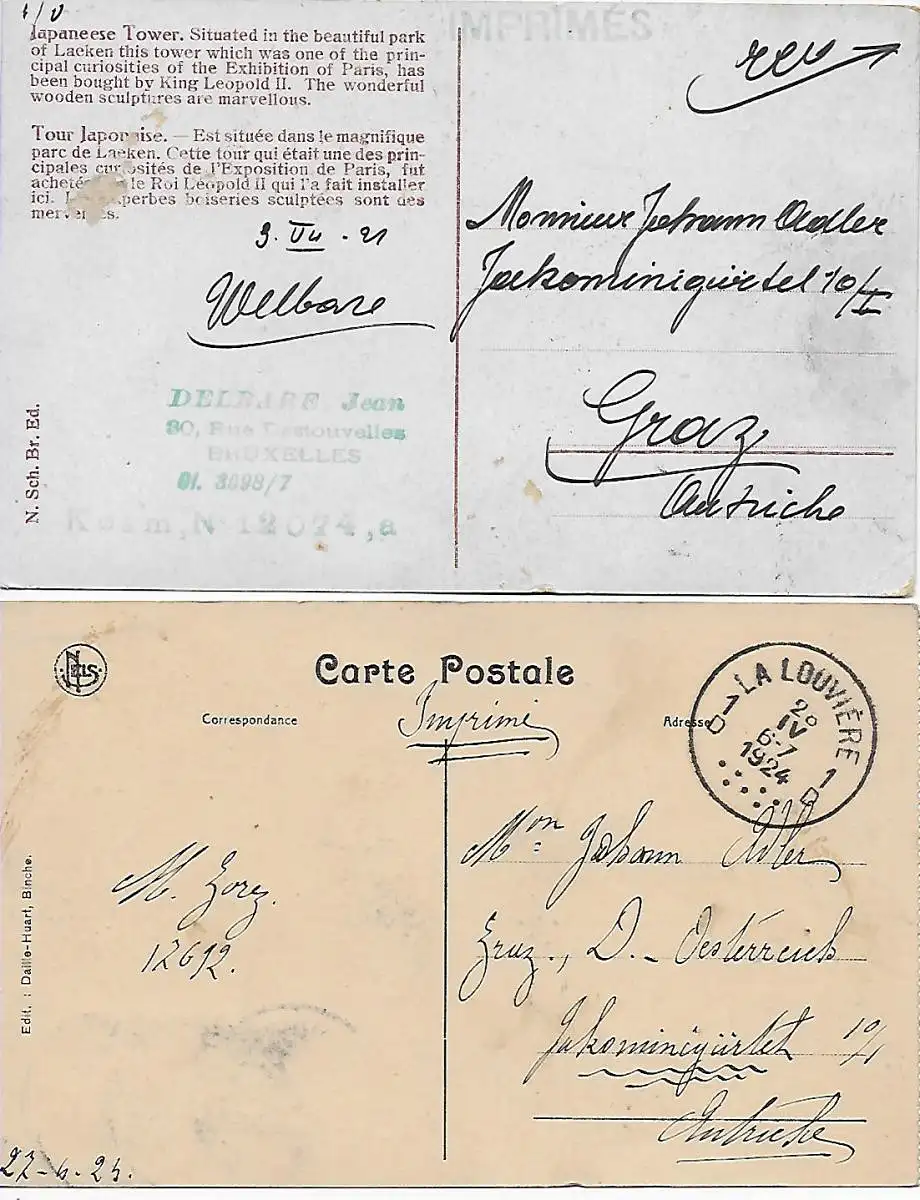 IMPRIMÉS
Japaneese Tower. Situated in the beautiful park
of Laeken this tower which was one of the prin-
cipal curiosities of the Exhibition of Paris, has
been bought by King Leopold II. The wonderful
wooden sculptures are marvellous.
Tour Japonaise. — Est située dans le magnifique
parc de Laeken. Cette tour qui était une des prin-
cipales curiosités de l'Exposition de Paris, fut
acheté le Roi Léopold II qui l'a fait installer
ici. boiseries sculptées sont des
merveilles.
9. VII . 21
N. Sch. Br. Ed.
DELBARE Jean
80, Rue Destouvelles
BRUXELLES
Ol. 3098/7
Kosm, No 12074, a
rev
Monsieur Johann Adler
Jakominigürtel 10/I
Graz
Autriche
ELS
Carte Postale
Correspondance
Imprimé
Adresse
LA LOUVIÈRE
1 D
20
IV
6-7
1924
1 D
M. Gorez.
12692.
Edit. : Daille-Huart, Binche.
Mon Johann Adler
Graz., D.- Oesterreich
Jakominigürtel 10/I
Autriche